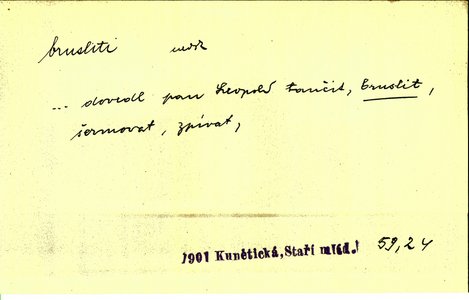 brusliti nedok
... dovedl pan Leopold tančit, bruslit,
šermovat, zpívat,
1901 Kunětická, Staří mlád.! 59,24